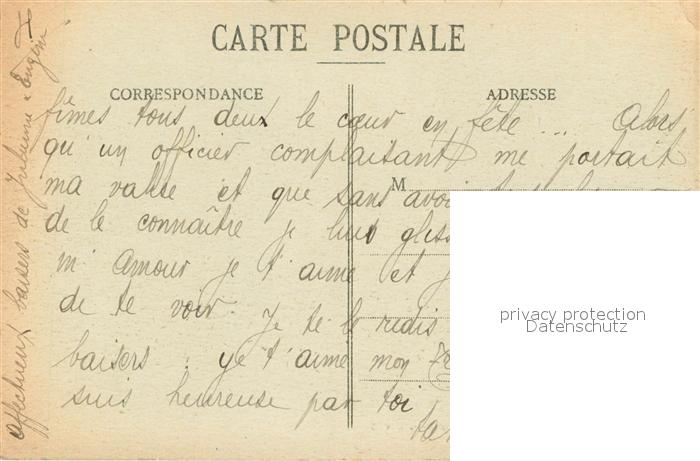 CARTE POSTALE
CORRESPONDANCE
ADRESSE
fîmes tous deux le cœur en fête ... Alors
qu'un officier complaisant me portait
M
ma valise et que sans avoir
de le connaître je lui gliss
m'amour je t'aime et j
de te voir. Je te le redis
baisers : je t'aime mon
suis heureuse par toi
ta
affectueux baisers de Julienne à Eugène
privacy protection
Datenschutz